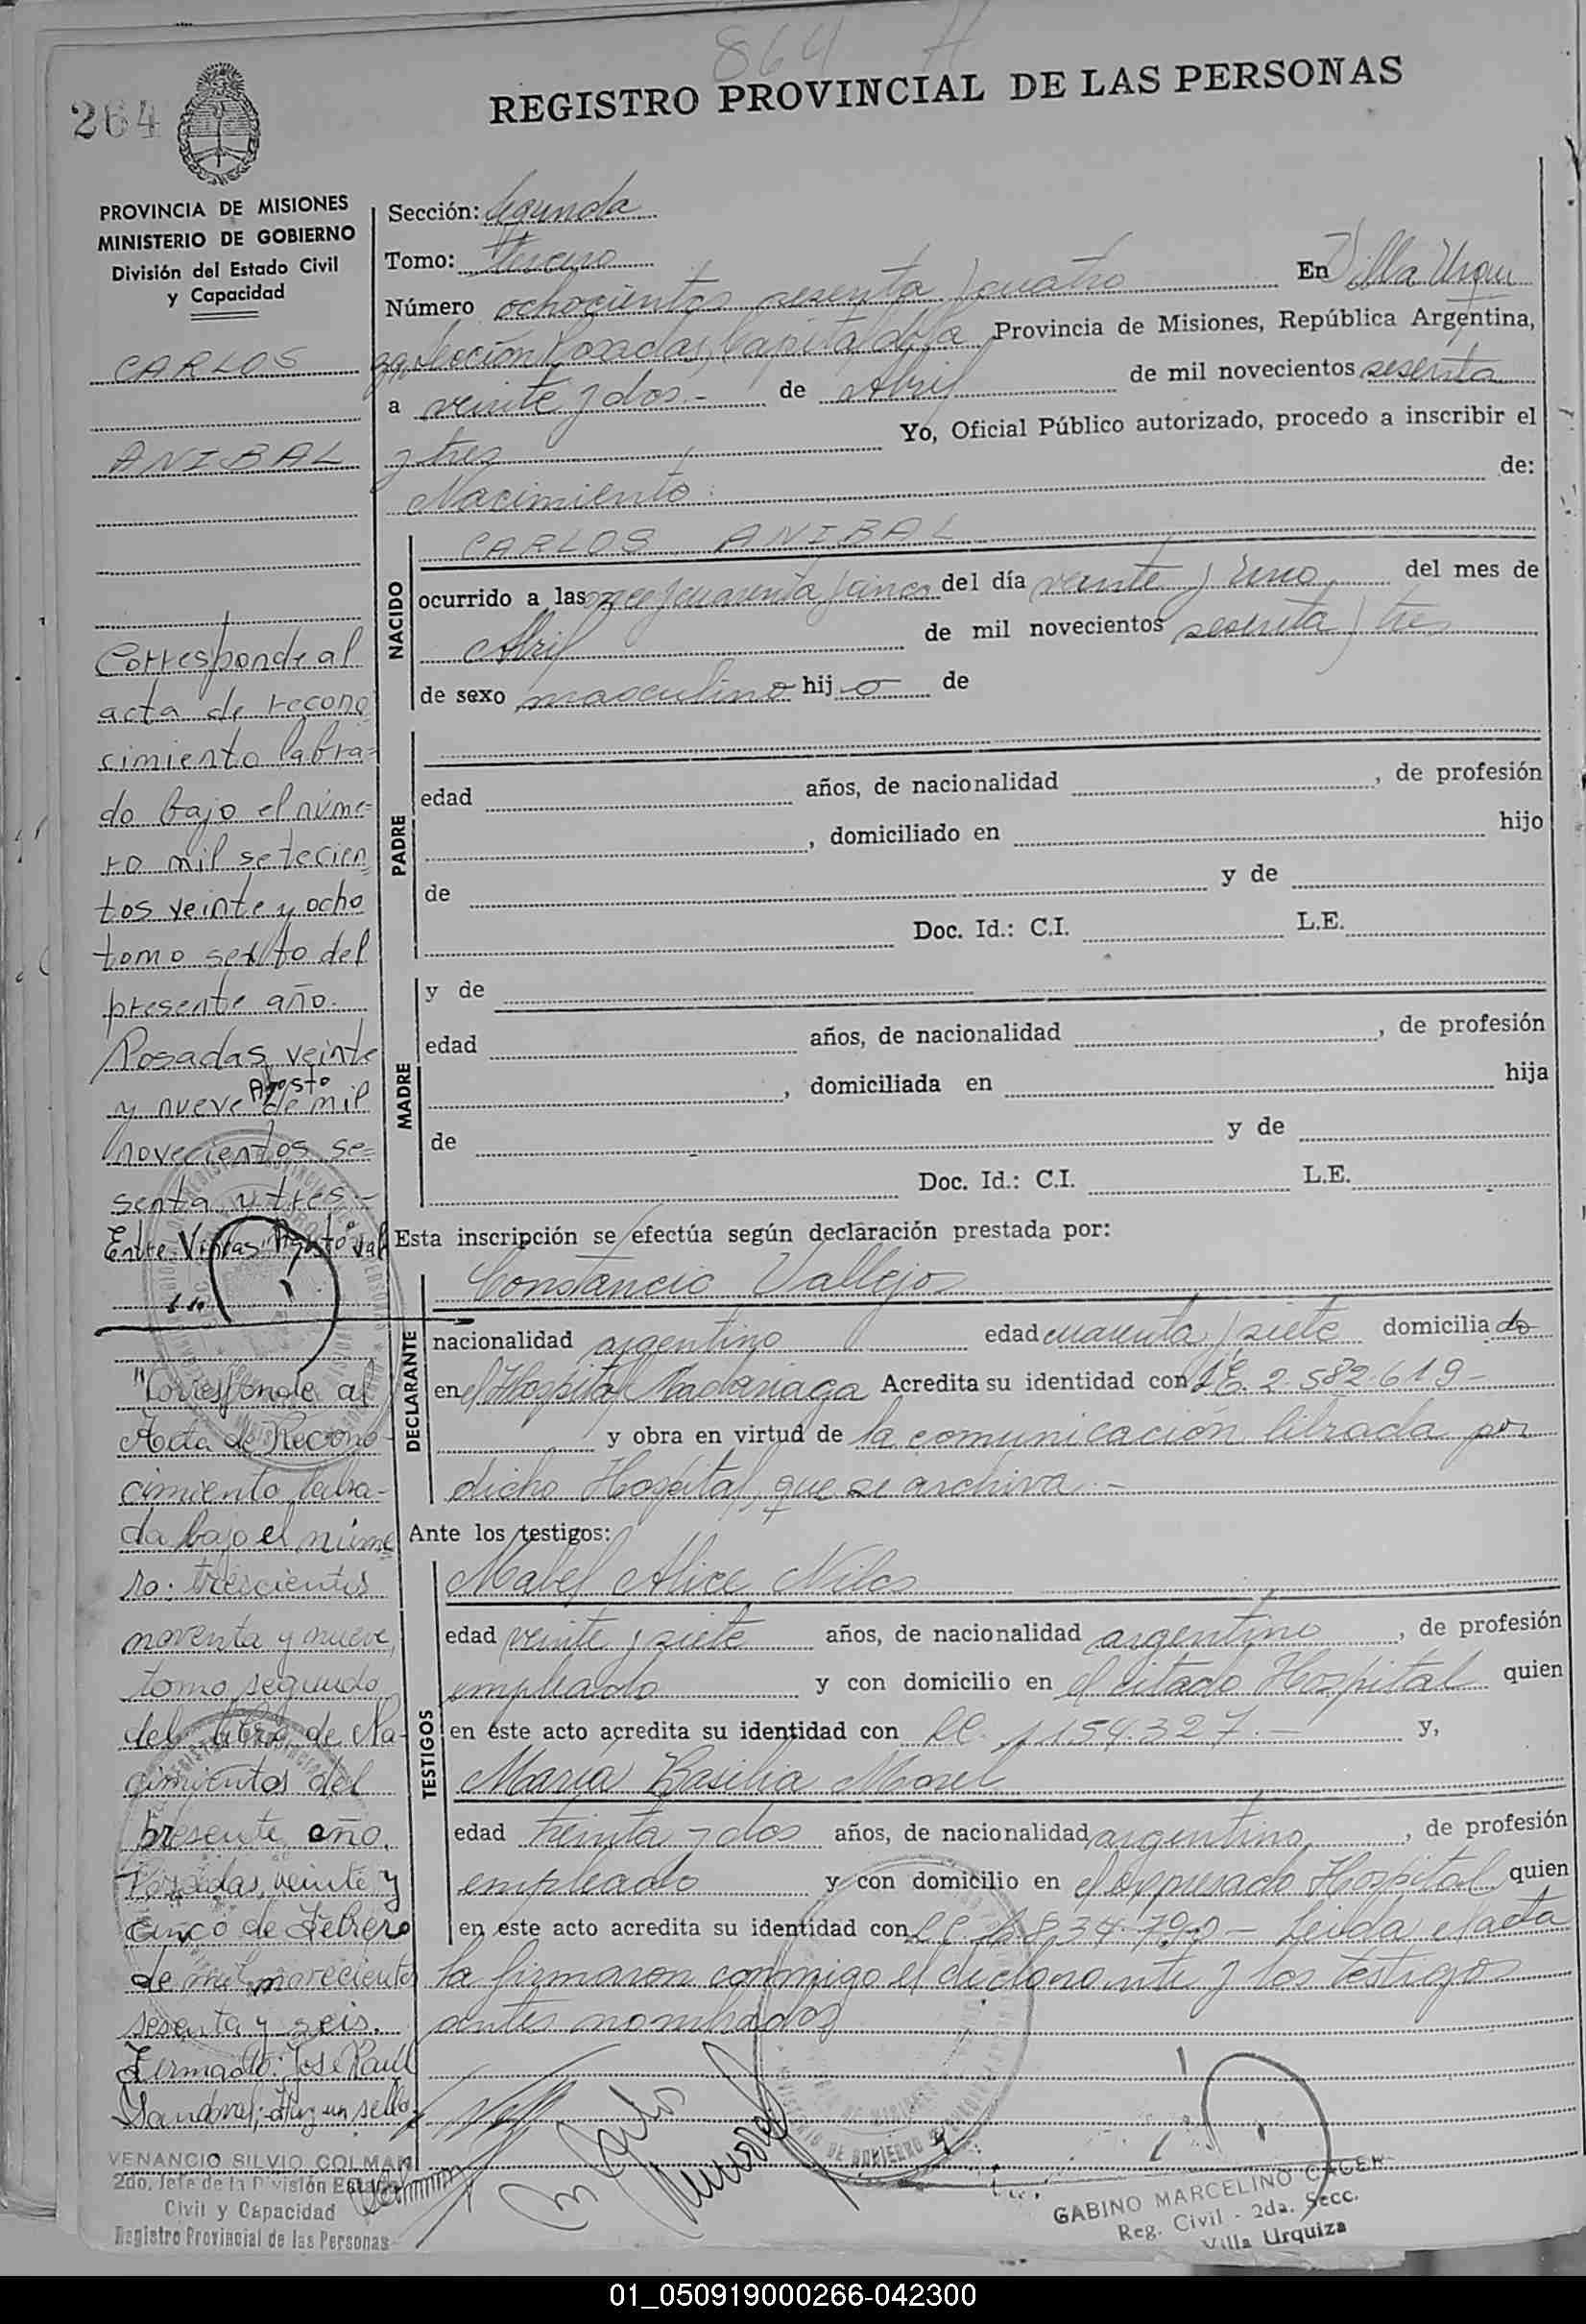 864 A
264
REGISTRO PROVINCIAL DE LAS PERSONAS
PROVINCIA DE MISIONES
MINISTERIO DE GOBIERNO
División del Estado Civil
y Capacidad
CARLOS
ANIBAL
Corresponde al
acta de recono
cimiento labra=
do bajo el núme=
ro mil setecien
tos veinte y ocho
tomo sexto del
presente año.
Posadas, veinte
Agosto
y nueve de mil
novecientos se=
senta y tres.-
Entre Vineas: Agosto: vale
"Corresponde al
Acta de Recono-
cimiento labra-
da bajo el núme
ro: trescientos
noventa y nueve,
tomo segundo
del libro de Na-
cimientos del
presente año.
Posadas, veinte y
cinco de Febrero
de mil novecientos
sesenta y seis.
Firmado: José Raúl
Sandoval; Hay un sello
VENANCIO SILVIO COLMAN
2do. Jefe de la División Estado
Civil y Capacidad
Registro Provincial de las Personas
Sección: Segunda
Tomo: Tercero
Número ochocientos sesenta y cuatro En Villa Urqui
za, Sección Posadas, Capital de la Provincia de Misiones, República Argentina,
a veinte y dos.- de Abril de mil novecientos sesenta
y tres Yo, Oficial Público autorizado, procedo a inscribir el
Nacimiento de:
NACIDO
CARLOS ANIBAL
ocurrido a las once y cuarenta y cinco del día veinte y uno del mes de
Abril de mil novecientos sesenta y tres
de sexo masculino hijo de
PADRE
edad años, de nacionalidad , de profesión
, domiciliado en hijo
de y de
Doc. Id.: C.I. L.E.
MADRE
y de
edad años, de nacionalidad , de profesión
, domiciliada en hija
de y de
Doc. Id.: C.I. L.E.
Esta inscripción se efectúa según declaración prestada por:
DECLARANTE
Constancio Vallejos
nacionalidad argentino edad cuarenta y siete domiciliado
en el Hospital Madariaga Acredita su identidad con L.E. 2.582.619-
y obra en virtud de la comunicación librada por
dicho Hospital, que se archiva.-
Ante los testigos:
TESTIGOS
Mabel Alice Nilos
edad veinte y siete años, de nacionalidad argentino, de profesión
empleado y con domicilio en el citado Hospital quien
en este acto acredita su identidad con LC. 1.154.327.- y,
María Basilia Morel
edad treinta y dos años, de nacionalidad argentino, de profesión
empleado y con domicilio en el expresado Hospital quien
en este acto acredita su identidad con L.C. - Leída el acta
la firmaron conmigo el declarante y los testigos
antes nombrados
GABINO MARCELINO CACER
Reg. Civil - 2da. Secc.
Villa Urquiza
01_050919000266-042300